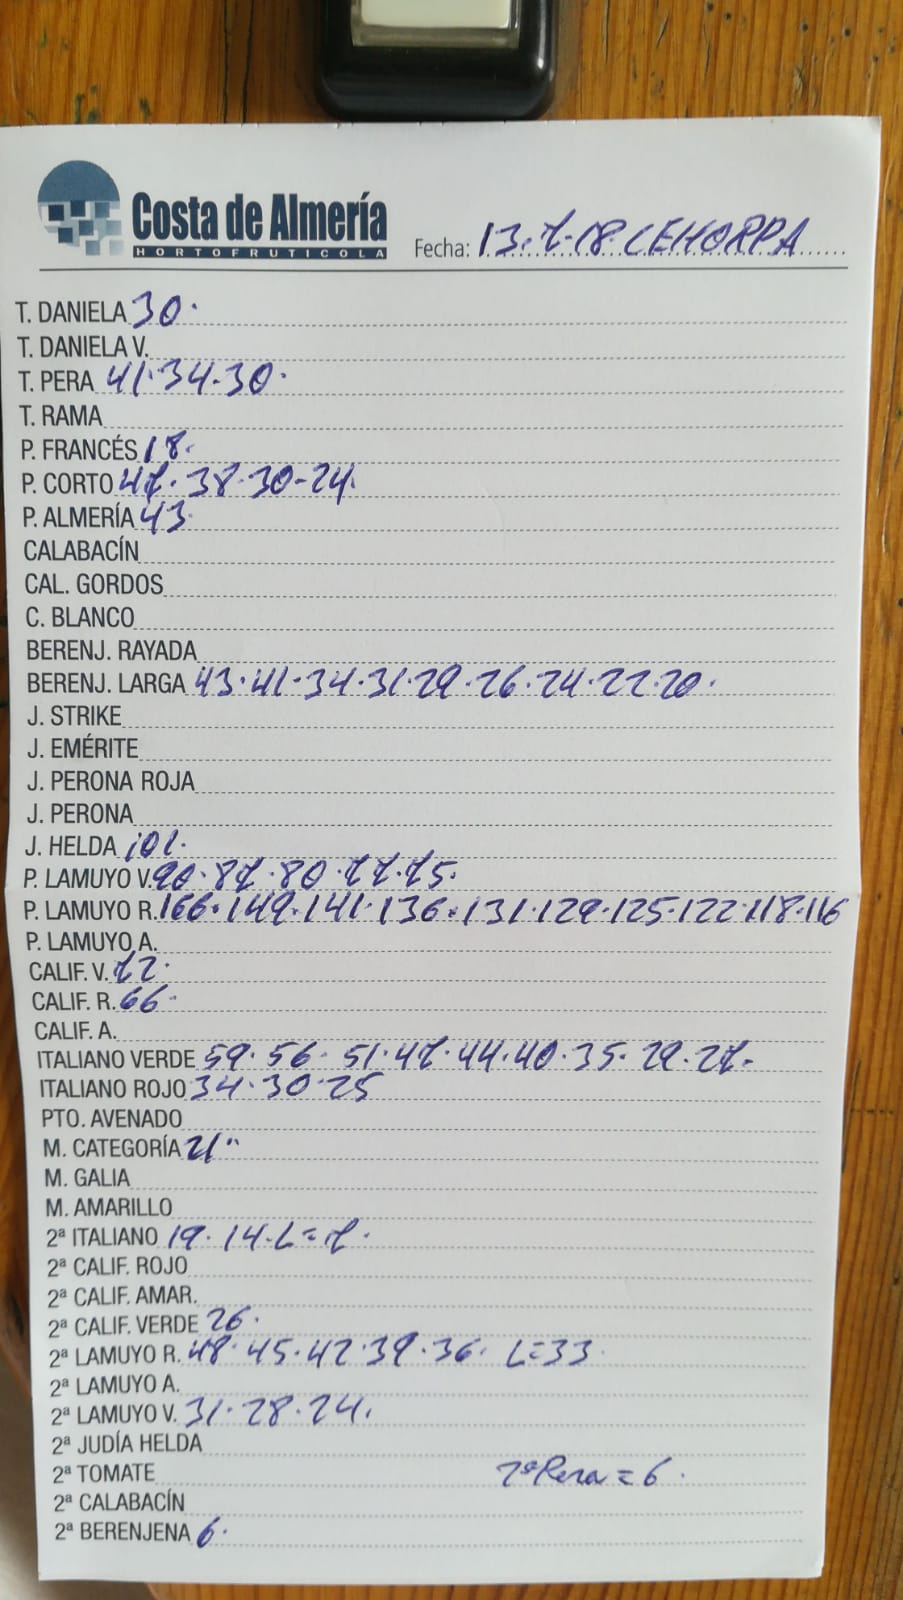 Costa de Almería
HORTOFRUTICOLA
Fecha: 13.7.18 CEHORPA
T. DANIELA 30.
T. DANIELA V.
T. PERA 41.34.30.
T. RAMA
P. FRANCÉS 18.
P. CORTO 47.38.30-24.
P. ALMERÍA 43
CALABACÍN
CAL. GORDOS
C. BLANCO
BERENJ. RAYADA
BERENJ. LARGA 43.41.34.31.29.26.24.22.20.
J. STRIKE
J. EMÉRITE
J. PERONA ROJA
J. PERONA
J. HELDA 101.
P. LAMUYO V. 90.87.80.77.75.
P. LAMUYO R. 166.149.141.136.131.129.125.122.118.116
P. LAMUYO A.
CALIF. V. 72.
CALIF. R. 66.
CALIF. A.
ITALIANO VERDE 59.56.51.47.44.40.35.29.27.
ITALIANO ROJO 34.30.25
PTO. AVENADO
M. CATEGORÍA 21"
M. GALIA
M. AMARILLO
2ª ITALIANO 19.14.L=7.
2ª CALIF. ROJO
2ª CALIF. AMAR.
2ª CALIF. VERDE 26.
2ª LAMUYO R. 48.45.42.39.36. L=33
2ª LAMUYO A.
2ª LAMUYO V. 31.28.24.
2ª JUDÍA HELDA
2ª TOMATE 2ª Pera = 6.
2ª CALABACÍN
2ª BERENJENA 6.